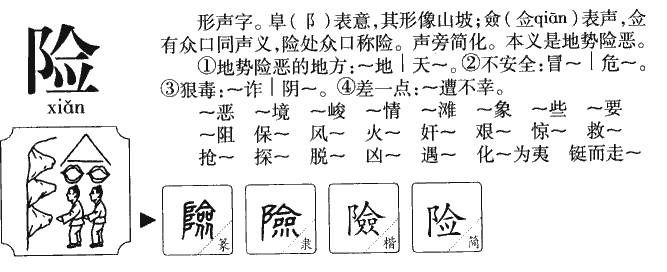 险
xiǎn
形声字。阜(阝)表意,其形像山坡;僉(佥qiān)表声,佥
有众口同声义,险处众口称险。声旁简化。本义是地势险恶。
①地势险恶的地方:～地｜天～。②不安全:冒～｜危～。
③狠毒:～诈｜阴～。④差一点:～遭不幸。
～恶 ～境 ～峻 ～情 ～滩 ～象 ～些 ～要
～阻 保～ 风～ 火～ 奸～ 艰～ 惊～ 救～
抢～ 探～ 脱～ 凶～ 遇～ 化～为夷 铤而走～
險 篆
險 隶
險 楷
险 简